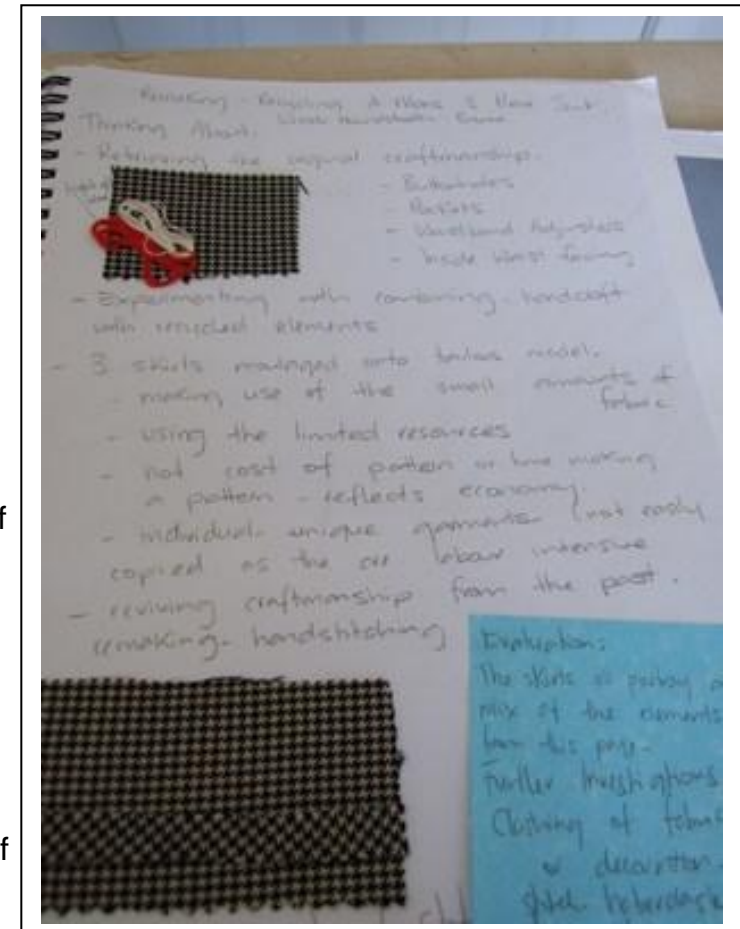 Remaking - Recycling A
Thinking About:
- Retaining the original craftmanship.
- Buttonholes
- Pockets
- Waistband Adjusters
- Inside Waist facing
- Experimenting with combining handcraft
with recycled elements
- 3 skirts onto model.
- making use of the small amounts of
fabric
- using the limited resources
- not cost of pattern or time making
a pattern - reflects economy.
- individual unique garments (not easily
copied as the are labour intensive
- reviving craftmanship from the past.
remaking - handstitching
Evaluation:
The skirts
mix of the elements
from this page -
Further Investigations
Clashing of fabric
decoration.
f
f